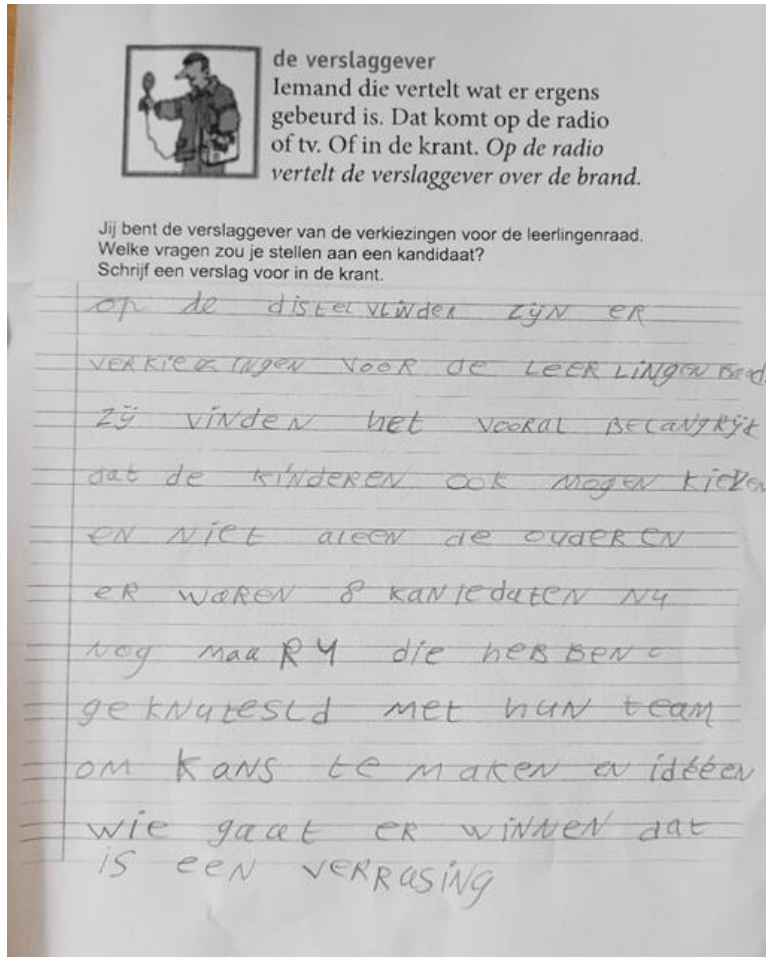 de verslaggever
Iemand die vertelt wat er ergens
gebeurd is. Dat komt op de radio
of tv. Of in de krant. Op de radio
vertelt de verslaggever over de brand.
Jij bent de verslaggever van de verkiezingen voor de leerlingenraad.
Welke vragen zou je stellen aan een kandidaat?
Schrijf een verslag voor in de krant.
op de distelvlinder zijn er
verkiezingen voor de LEERLingen
zij vinden het vooral BeLangRijk
dat de kinderen ook mogen kiezen
en niet aleen de ouderen
er waren 8 kaniedaten nu
nog maar 4 die hebben
geknutesld met hun team
om kans te maken en idééen
wie gaat er winnen dat
is een verrasing